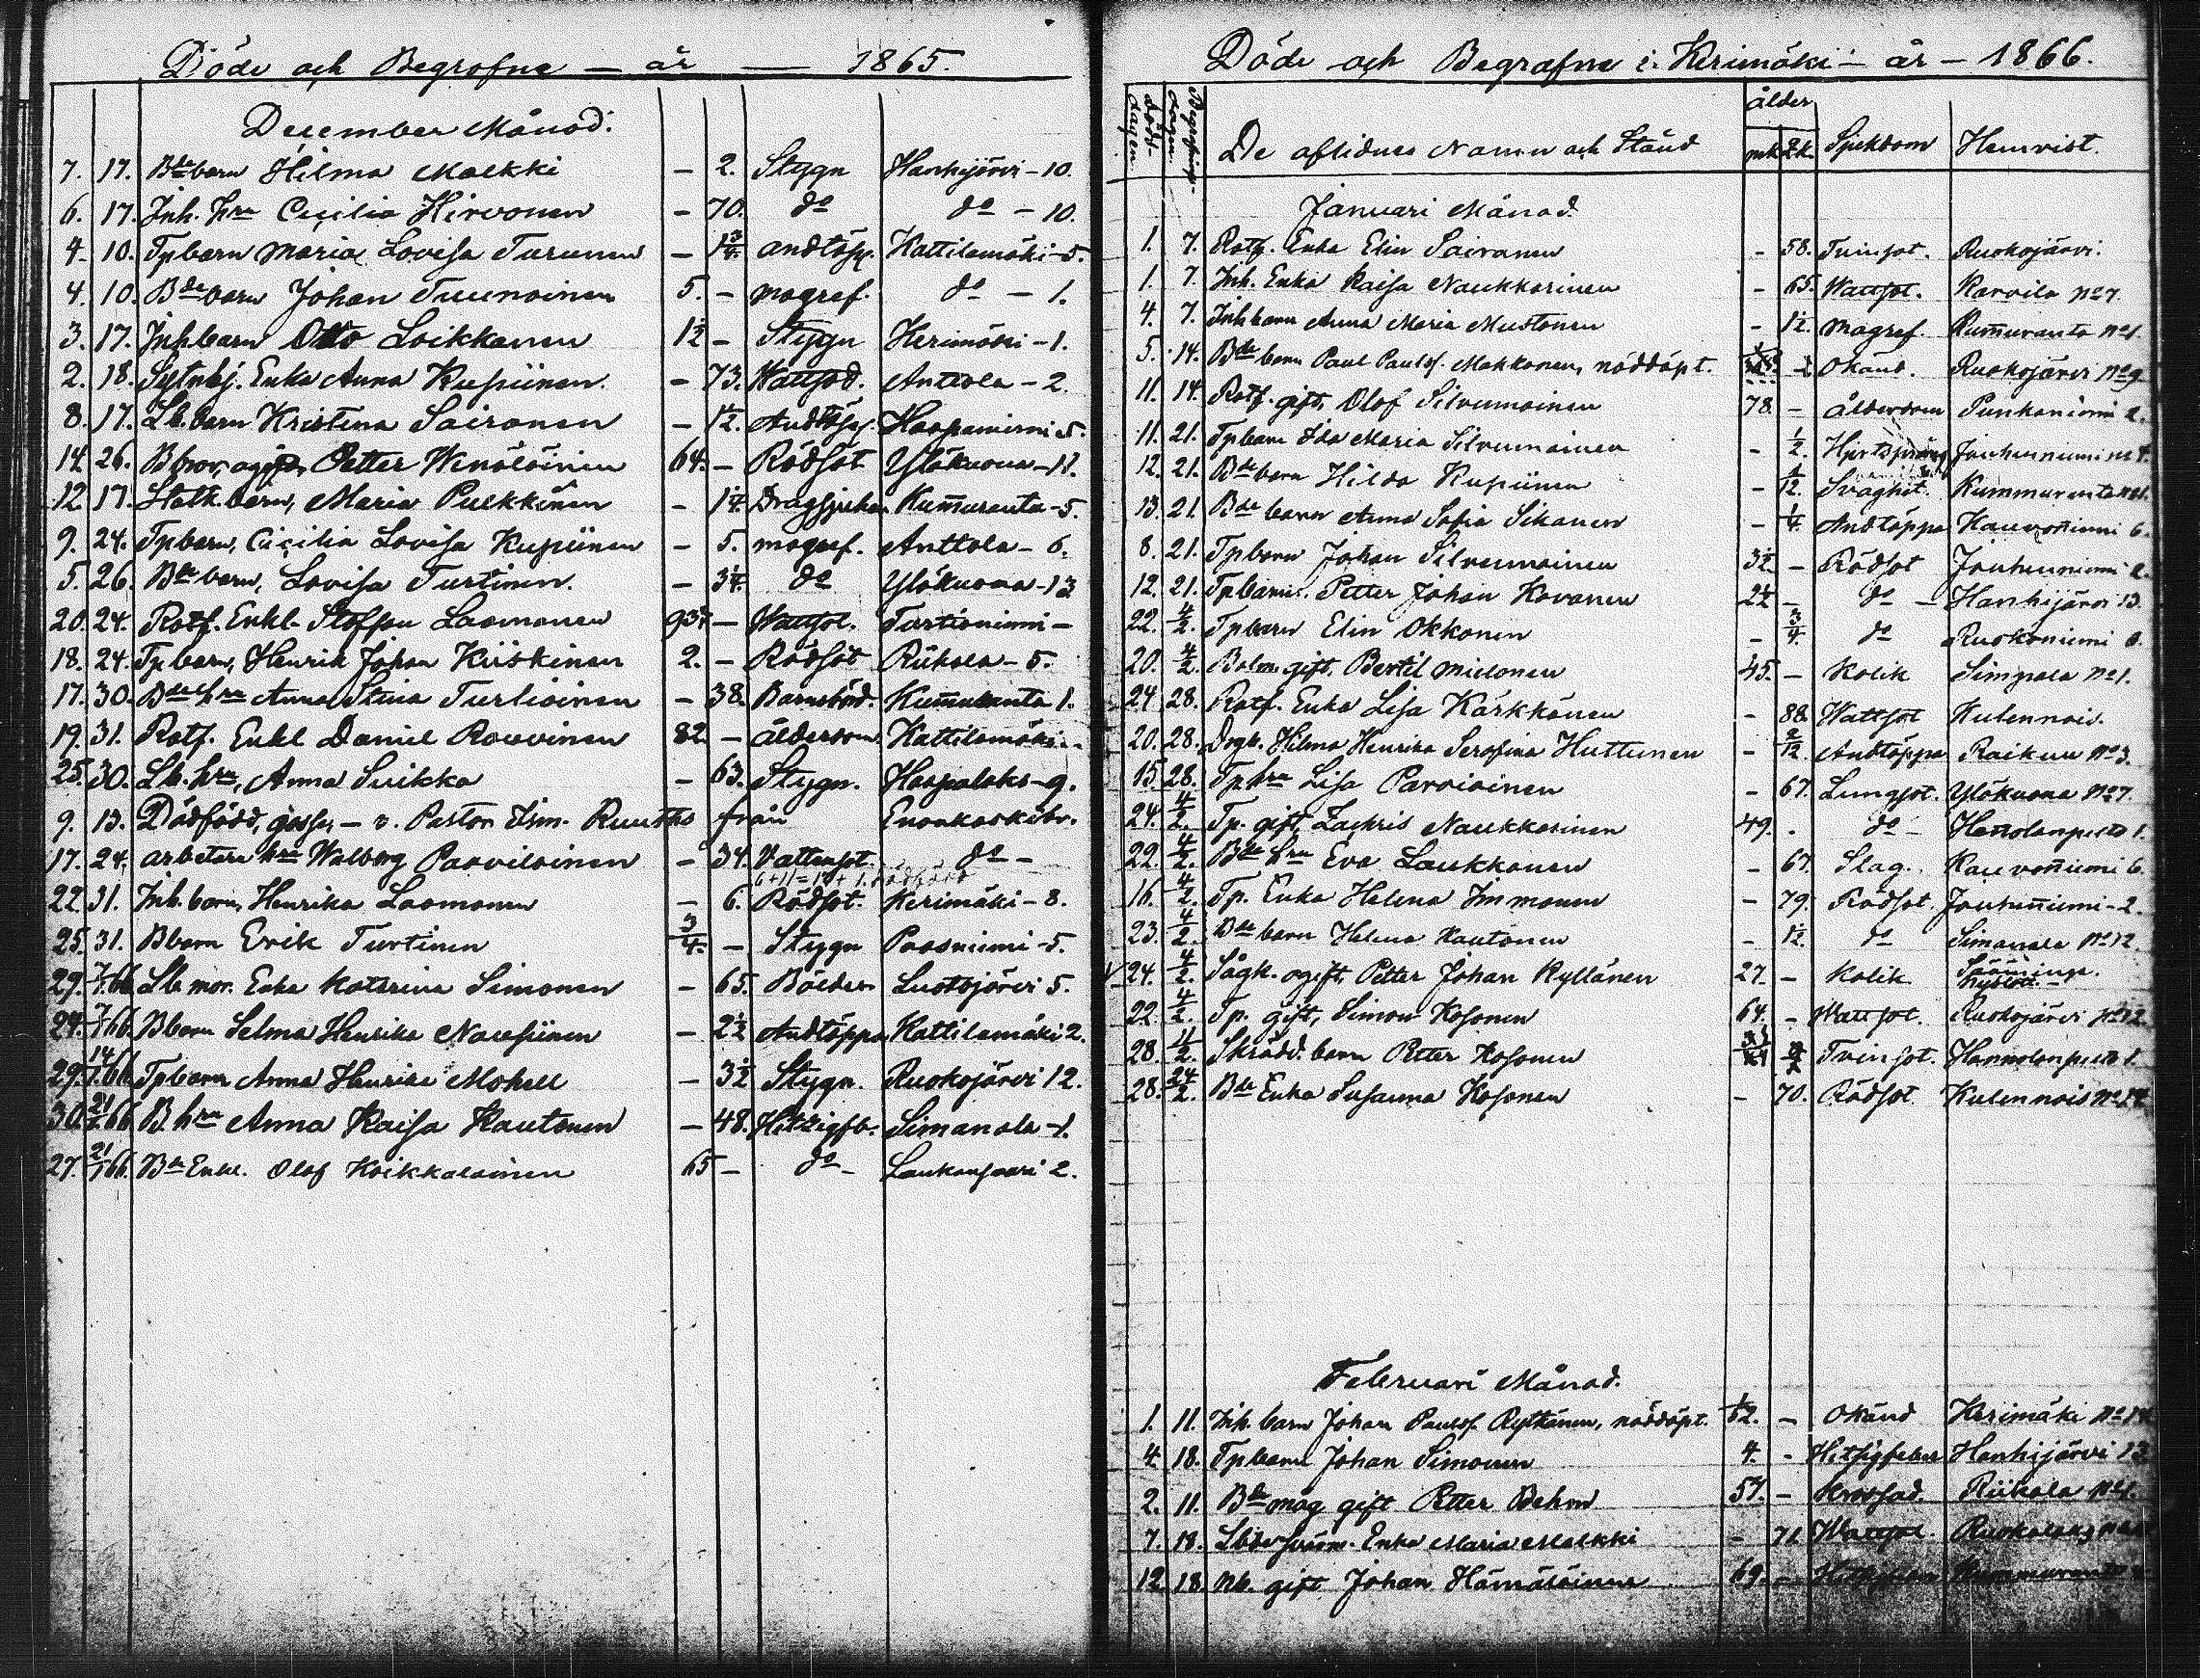 Döde och Begrafne — år — 1865.
December Månad.
7. 17. Bdebarn Hilma Malkki — 2. Stygn Hanhijärvi – 10.
6. 17. Inh. hru Cicilia Hirvonen — 70. do do — 10.
4. 10. Tpbarn Maria Lovisa Turunen — 1 3/4. andtäp. Kattilamäki – 5.
4. 10. Bdebarn Johan Tuunainen 5. — magref. do — 1.
3. 17. Inhbarn Otto Loikkanen 1 1/2 — Stygn Kerimäki – 1.
2. 18. Sytnhj. Enka Anna Kupiinen. — 73. Wattsot. Anttola – 2.
8. 17. Lb. barn Kristina Sairanen — 1/12. Andtäpp. Haapaniemi 5.
14. 26. Petter Wenäläinen 64. — Rödsot Yläkuona – 11.
12. 17. barn, Maria Pulkkinen — 1 1/4. Dragsjukan Kummuranta – 5.
9. 24. Tpbarn, Cicilia Lovisa Kupiinen — 5. magref. Anttola – 6.
5. 26. Bdebarn, Lovisa Turtinen. — 3 1/4. do Yläkuona – 13
20. 24. Rotf. Enkl. Staffan Laamanen — Wattsot. Turtianiemi –
18. 24. Tpbarn, Henrik Johan Kiiskinen 2. — Rödsot Riihola – 5.
17. 30. Bde hru Anna Stina Turtiainen — 38. Barnsbörd. Kummuranta 1.
19. 31. Rotf. Enkl Daniel Rouvinen 82 — ålderdom. Kattilamäki
25. 30. Lb. hru, Anna Suikka — 63. Stygn. Haapalaks – 9.
9. 13. Dödfödd, gosse, — v. Pastor Ism. Ruuths från Enonkoskibr.
17. 24. arbetare hru Walborg Paavilainen — 34. Vattensot. do –
22. 31. Inh. barn, Henrika Laamanen — 6. Rödsot. Kerimäki – 8.
25. 31. Bbarn Erik Turtinen 3/4. — Stygn Paasniemi – 5.
29. 7/1 66. Lb mor. Enka Katarina Simonen — 65. Bölder Luotojärvi 5.
24. 7/1 66. Bbarn Selma Henrika Naukiinen — 2 1/2 Andtäppa Kattilamäki 2.
29. 14/1 66. Tpbarn Anna Henrika Mohell — 3 1/2 Stygn. Ruokojärvi 12.
30. 21/1 66. B. hru Anna Kaisa Kautonen — 48. Hetzigfb. Simanala – 1.
27. 21/1 66. Bde Enkl. Olof Koikkalainen 65 — do – Laukansaari 2.
Döde och Begrafne i Kerimäki – år – 1866.
Döds-dagen. Begrafnings-dagen. De aflidnes Namn och Stånd ålder mk. qk. Sjukdom Hemvist.
Januari Månad.
1. 7. Rotf. Enka Elin Sairanen – 58. Tvinsot. Ruokojärvi.
1. 7. Inh. Enka Kaisa Naukkarinen – 65. Wattsot. Karvila No 7.
4. 7. Inhbarn Anna Maria Mustonen – 1/12. magref. Kummuranta No 1.
5. 14. Bdebarn Paul Paulsf. Makkonen, nöddöpt. Okänd. Ruokojärvi No 9
11. 14. Rotf. gift, Olof Silvennoinen 78. – ålderdom Punkaniemi 2.
11. 21. Tpbarn Ida Maria Silvennoinen – 1/2. Jouhenniemi No 4.
12. 21. Bdebarn Hilda Kupiinen – 1/12. Svaghet. Kummuranta
13. 21. Bdebarn Anna Sofia Sikanen – 1/4. Andtäppa Kauvonniemi 6.
8. 21. Tpbarn Johan Silvennoinen 3 1/2 – Rödsot Jouhenniemi 2.
12. 21. Tpbarn. Petter Johan Kovanen 2 1/4 – do – Hanhijärvi 13.
22. 4/2. Tpbarn Elin Okkonen – 3/4. do Ruokoniemi 8.
20. 4/2. gift. Bertil Mielonen 45. – Kolik Simpala No 1.
24 28. Rotf. Enka Lisa Kärkkänen – 88. Wattsot Kulennois.
20. 28. Dogk. Hilma Henrika Serafina Huttunen – 2/12. Andtäppa Raikuu No 3.
15 28. Tp hru Lisa Parviainen – 67. Lungsot. Yläkuona No 7.
24. 4/2. Tp. gift, Zachris Naukkarinen 49. . do – Hannolanpelto 1.
22. 4/2. Bde hru Eva Laukkanen – 67. Slag. Kauvonniemi 6.
16. 4/2. Tp. Enka Helena Immonen – 79. Rödsot. Jouhenniemi – 2.
23. 4/2. Bdebarn Helena Kautonen – 1/12. do Simanala No 12.
24. 4/2. Sågk. ogift, Petter Johan Kyllänen 27. – Kolik Sääminge.
22 4/2. Tp. gift, Simon Kosonen 64. – Wattsot. Ruokojärvi No 12.
28. 11/2. Skrädd. barn Petter Kosonen Tvinsot. Hannolanpelto 1.
28. 24/2. Bde Enka Susanna Kosonen – 70. Rödsot. Kulennois No 14.
Februari Månad.
1. 11. Inh. barn Johan Paulsf. Rytkänen, nöddöpt. 1/52. – Okänd Kerimäki No 14
4. 18. Tpbarn Johan Simonen 4. – Hitsigfeber Hanhijärvi 13
2. 11. Bde måg gift Petter Behm 57. – Krossad. Riihola No 1.
7. 18. Enka Maria Malkki – 71 Wattsot. Ruokolaks
12 18 Nb. gift Johan Hämäläinen 69. – Hitsigfeber Kummuranta